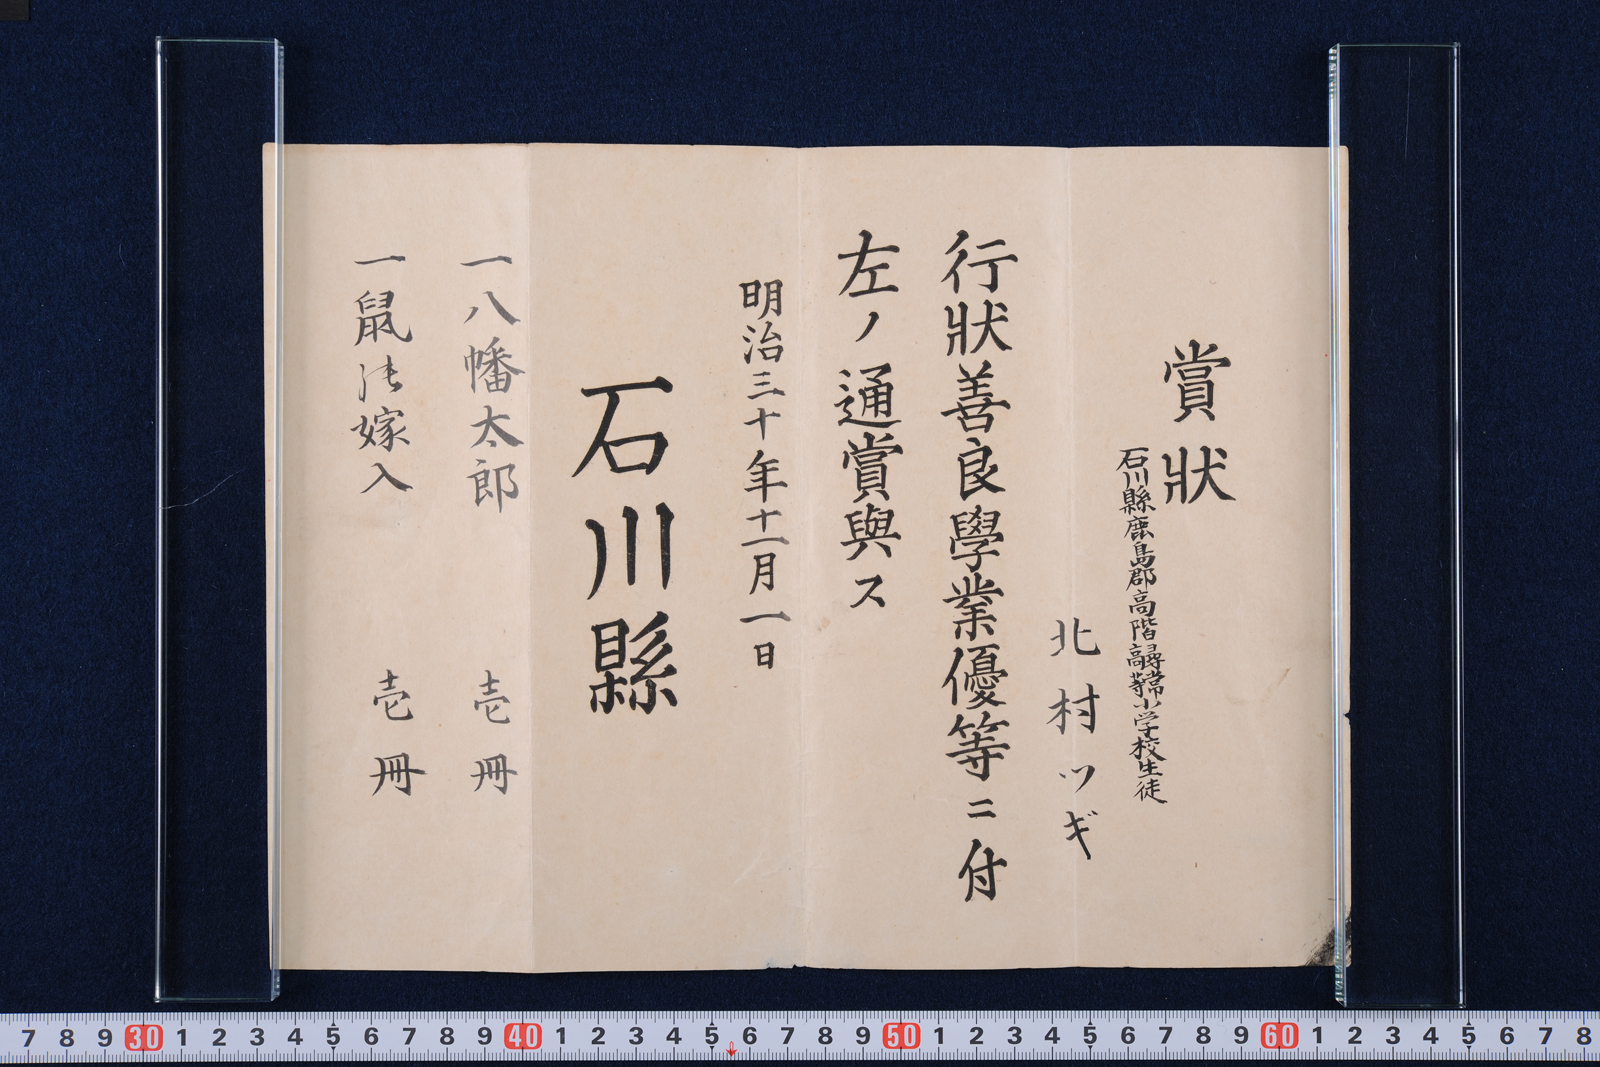 賞狀
石川縣鹿島郡高階尋常高等小学校生徒
北村ツギ
行狀善良學業優等ニ付
左ノ通賞與ス
明治三十年十一月一日
石川縣
一八幡太郎 壱冊
一鼠の嫁入 壱冊
7 8 9 30 1 2 3 4 5 6 7 8 9 40 1 2 3 4 5 6 7 8 9 50 1 2 3 4 5 6 7 8 9 60 1 2 3 4 5 6 7 8